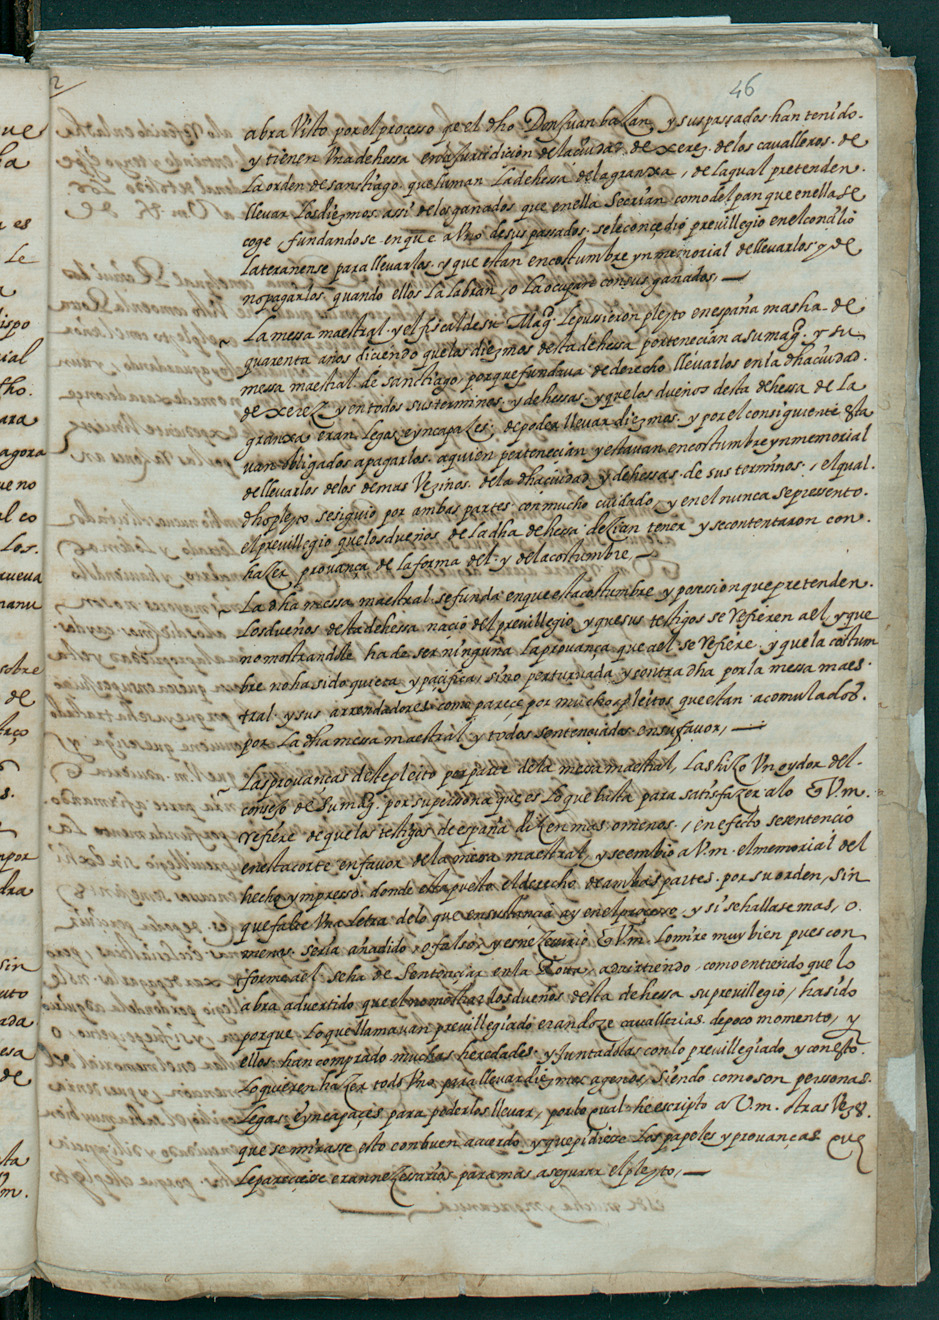 46
abra Visto por el processo q̃ el dho Don Juan baçan y sus passados han tenido.
y tienen Vna dehessa en la jurisdicion de la ciudad. de xerez. de los cavalleros. de
la orden de sanctiago. que llaman La dehessa de la granxa, de la qual pretenden.
llevar Los diezmos assi de los ganados que en ella se crian como del pan que en ella se
coge fundandose. en que a Vno de sus passados. se le concedio previllegio en el concilio
Lateranense para llevarlos. y que estan en costumbre ynmemorial de llevarlos y de
no pagarlos. quando ellos La labran, o la ocupare con sus ganados,
La messa maestral. y el fiscal de su Mag. Le pussieron pleyto en españa mas ha. de
quarenta años diciendo que los diezmos desta dehessa pertenecian a su mag. y su
messa maestral de sanctiago porque fundava de derecho llevarlos en la dha ciudad.
de xerez y en todos sus terminos. y dehessas. y que los dueños desta dehessa de la
granxa eran Legos. e yncapazes. de poder llevar diezmos. y por el consiguiente esta
uan obligados a pagarlos. a quien pertenecian y estavan en costumbre ynmemorial
de llevarlos de los demas Vezinos. de la dha ciudad y dehessas. de sus terminos. el qual.
dho pleyto se siguio por ambas partes con mucho cuidado. y en el nunca se pressento.
el previllegio que los dueños de La dha dehessa dezian tener y se contentaron con.
hazer provança de la forma del. y de la costumbre
La dha messa maestral. se funda en que esta costumbre y possesion que pretenden.
Los dueños desta dehessa naçio del previllegio y que sus testigos se Refieren a el y que
no mostrandole ha de ser ninguna La provança que a el se Refiere. y que la costum
bre no ha sido quieta y pacifica, sino perturvada y contradha por la messa maes.
tral. y sus arrendadores. como pareçe por muchos pleitos que estan acomulados.
por La dha messa maestral y todos sentenciados en su favor,
Las provanças deste pleito por parte de la messa maestral, Las hizo Vn oydor del.
consejo de su mag. por su persona que es Lo que basta para satisfazer a lo q V.m.
refiere de que los testigos de españa dizen mas o menos. en efecto se sentenció
en esta corte en favor de la messa maestral y se embio a V.m. el memorial del
hecho ympresso. donde esta puesto el derecho de ambas partes. por su orden, sin
que falte Vna letra de lo que en sustancia ay en el processo, y si se hallase mas, o.
menos. seria añadido. o falso. y es neçessario q V.m. Lo mire muy bien pues con
forme a el se ha de sentençiar en la Rota, advirtiendo, como entiendo que lo
abra advertido, que el no mostrar los dueños desta dehessa su previllegio, ha sido
porque. Lo que llamavan previllegiado eran doze cavallerias. de poco momento, y
ellos. han comprado muchas heredades. y Juntadolas con lo previllegiado, y con esto.
Lo quieren hazer todo Vno, para llevar diezmos agenos, siendo como son personas.
Legas. e yncapaçes para poderlos llevar, por lo qual he escripto a V.m. otras Vezes.
que se mirasse esto con buen acuerdo y que pidiese Los papeles y provanças que
Le pareçiese eran neçessarios para mas asegurar el pleyto,